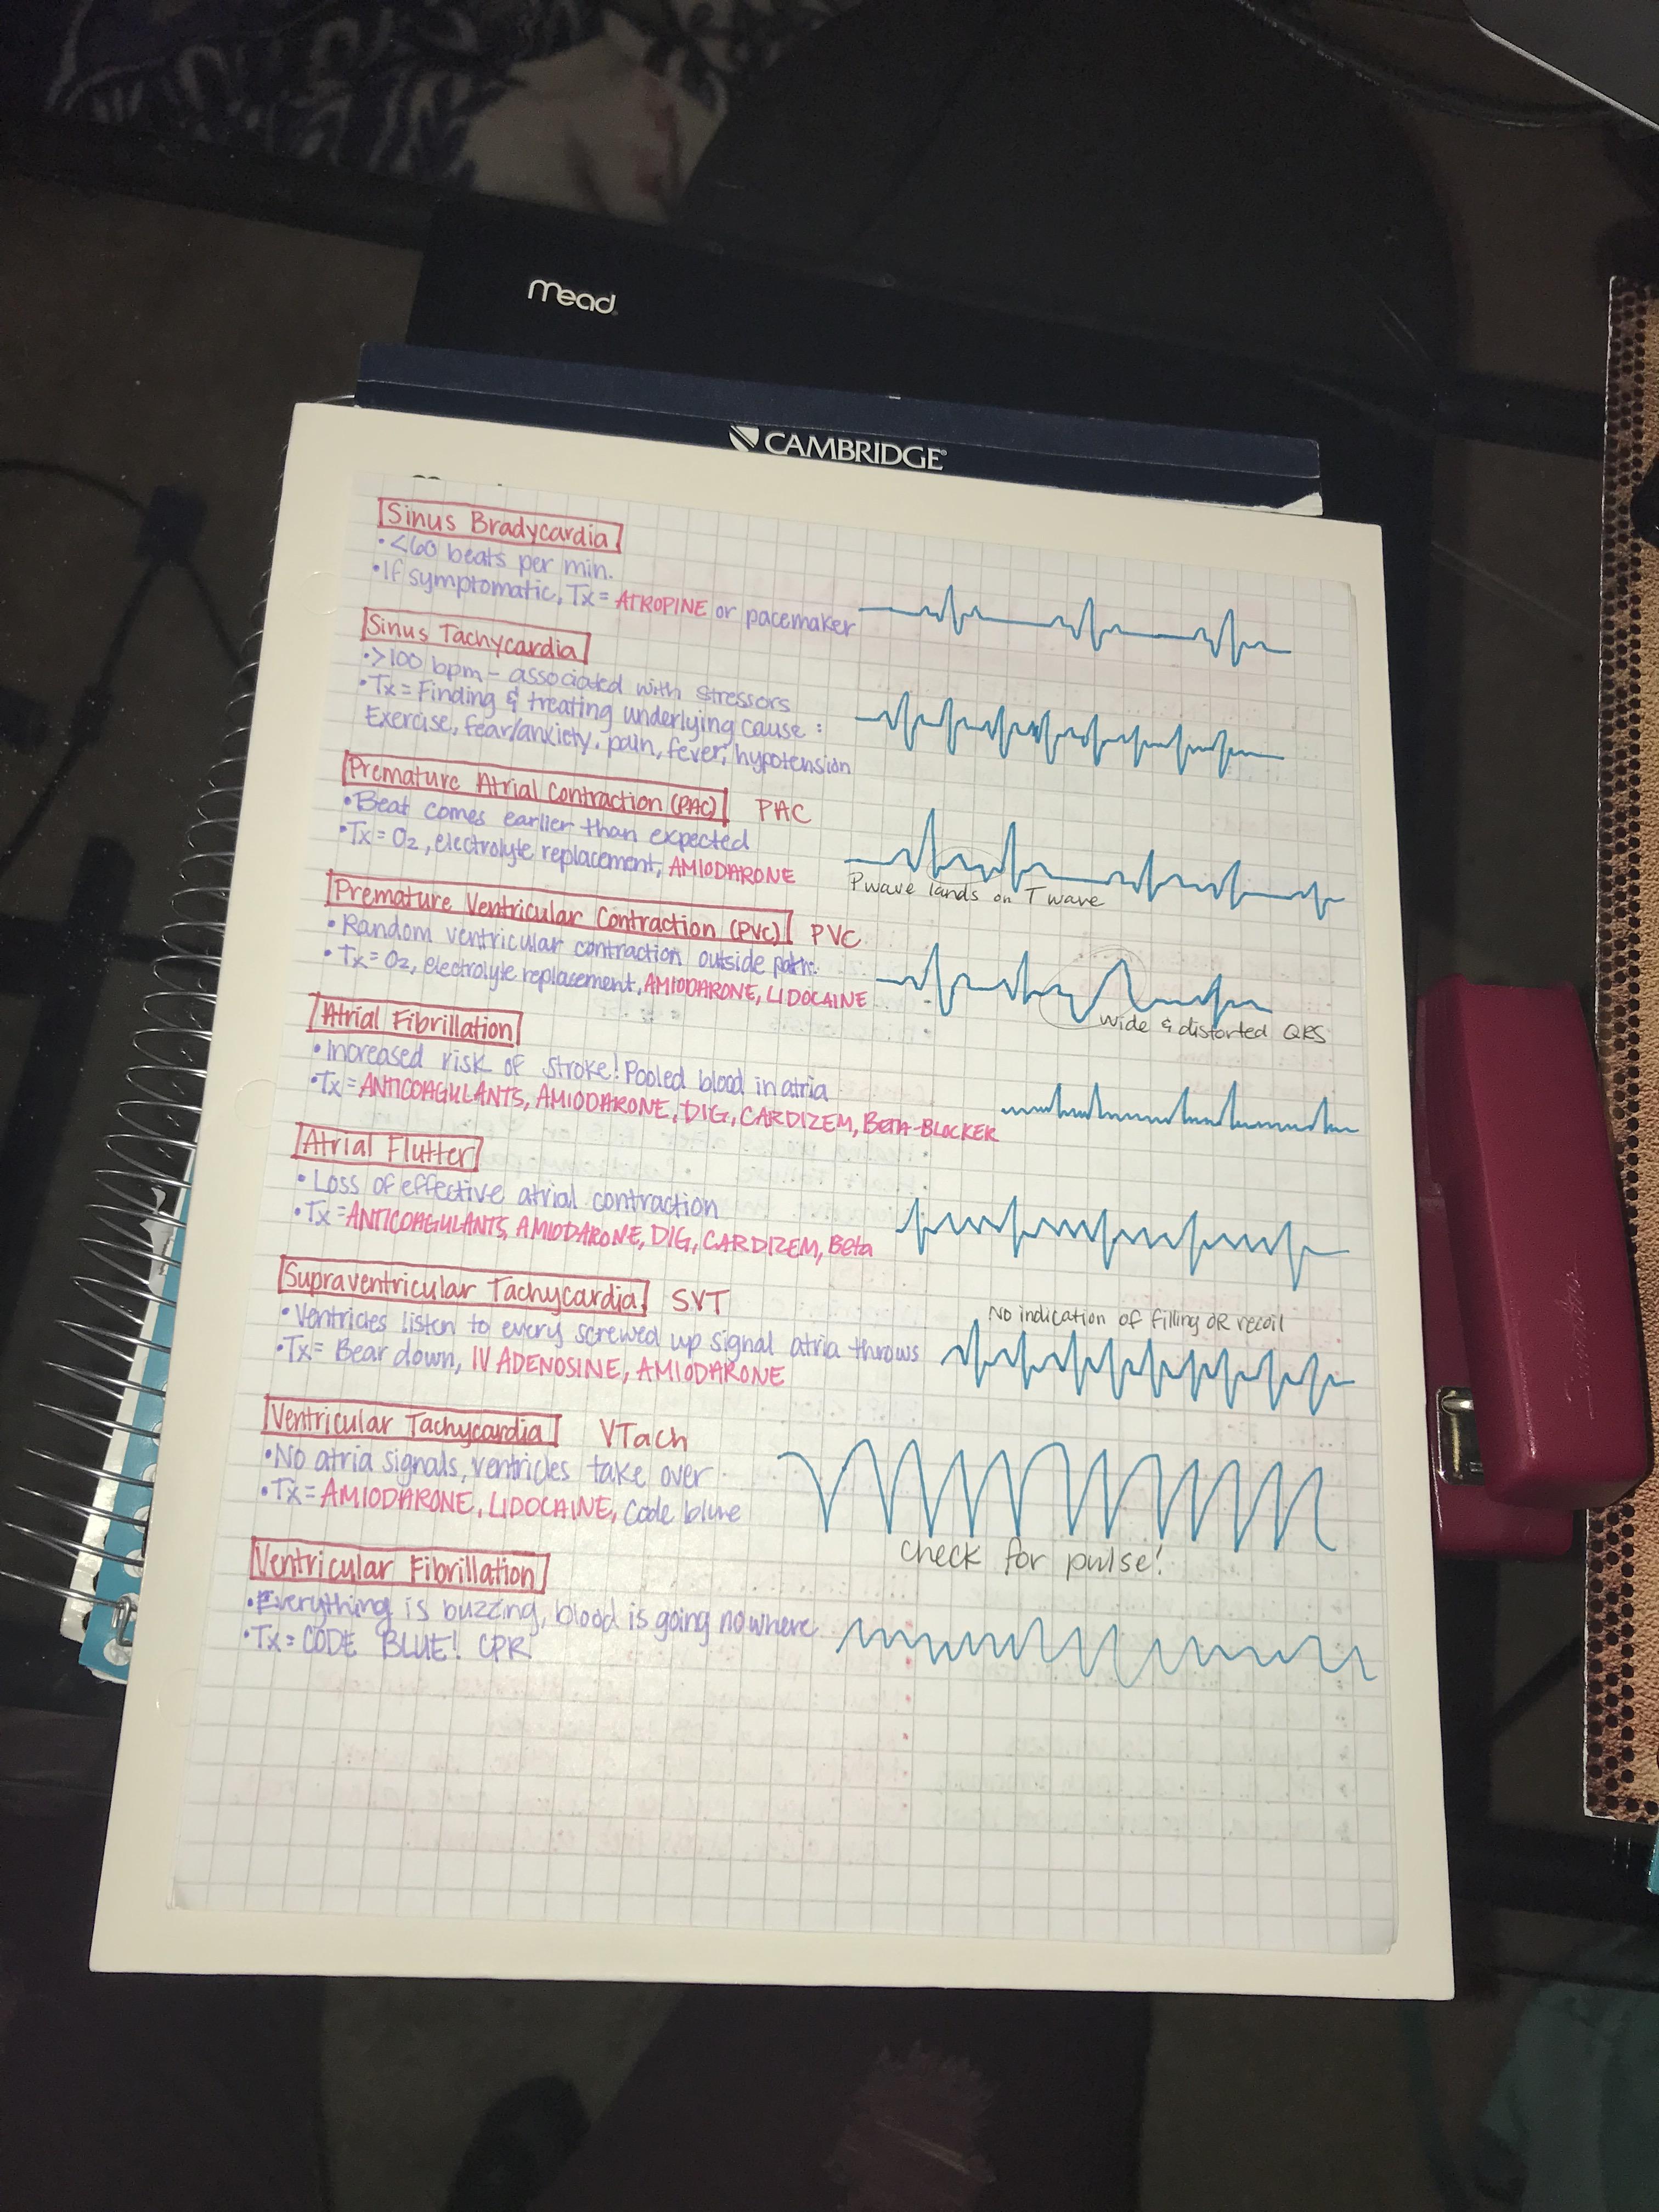 mead
CAMBRIDGE
Sinus Bradycardia
• <60 beats per min.
• If symptomatic, Tx = ATROPINE or pacemaker
Sinus Tachycardia
• >100 bpm - associated with stressors
• Tx = Finding & treating underlying cause :
Exercise, fear/anxiety, pain, fever, hypotension
Premature Atrial Contraction (PAC) PAC
• Beat comes earlier than expected
• Tx = O2, electrolyte replacement, AMIODARONE
P wave lands on T wave
Premature Ventricular Contraction (PVC) PVC
• Random ventricular contraction outside path.
• Tx = O2, electrolyte replacement, AMIODARONE, LIDOCAINE
Wide & distorted QRS
Atrial Fibrillation
• Increased risk of stroke! Pooled blood in atria
• Tx = ANTICOAGULANTS, AMIODARONE, DIG, CARDIZEM, BETA-BLOCKER
Atrial Flutter
• Loss of effective atrial contraction
• Tx = ANTICOAGULANTS, AMIODARONE, DIG, CARDIZEM, Beta
Supraventricular Tachycardia SVT
No indication of filling OR recoil
• Ventricles listen to every screwed up signal atria throws
• Tx = Bear down, IV ADENOSINE, AMIODARONE
Ventricular Tachycardia VTach
• No atria signals, ventricles take over
• Tx = AMIODARONE, LIDOCAINE, Code blue
Check for pulse!
Ventricular Fibrillation
• Everything is buzzing, blood is going nowhere
• Tx = CODE BLUE! CPR